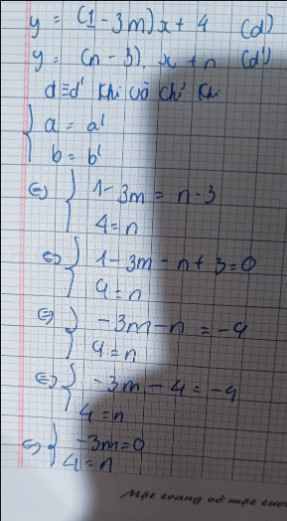 y = (1 - 3m)x + 4 (d)
y = (n - 3). x + n (d')
d ≡ d' khi và chỉ khi
{ a = a'
b = b'
⇔ { 1 - 3m = n - 3
4 = n
⇔ { 1 - 3m - n + 3 = 0
4 = n
⇔ { -3m - n = -4
4 = n
⇔ { -3m - 4 = -4
4 = n
⇔ { -3m = 0
4 = n